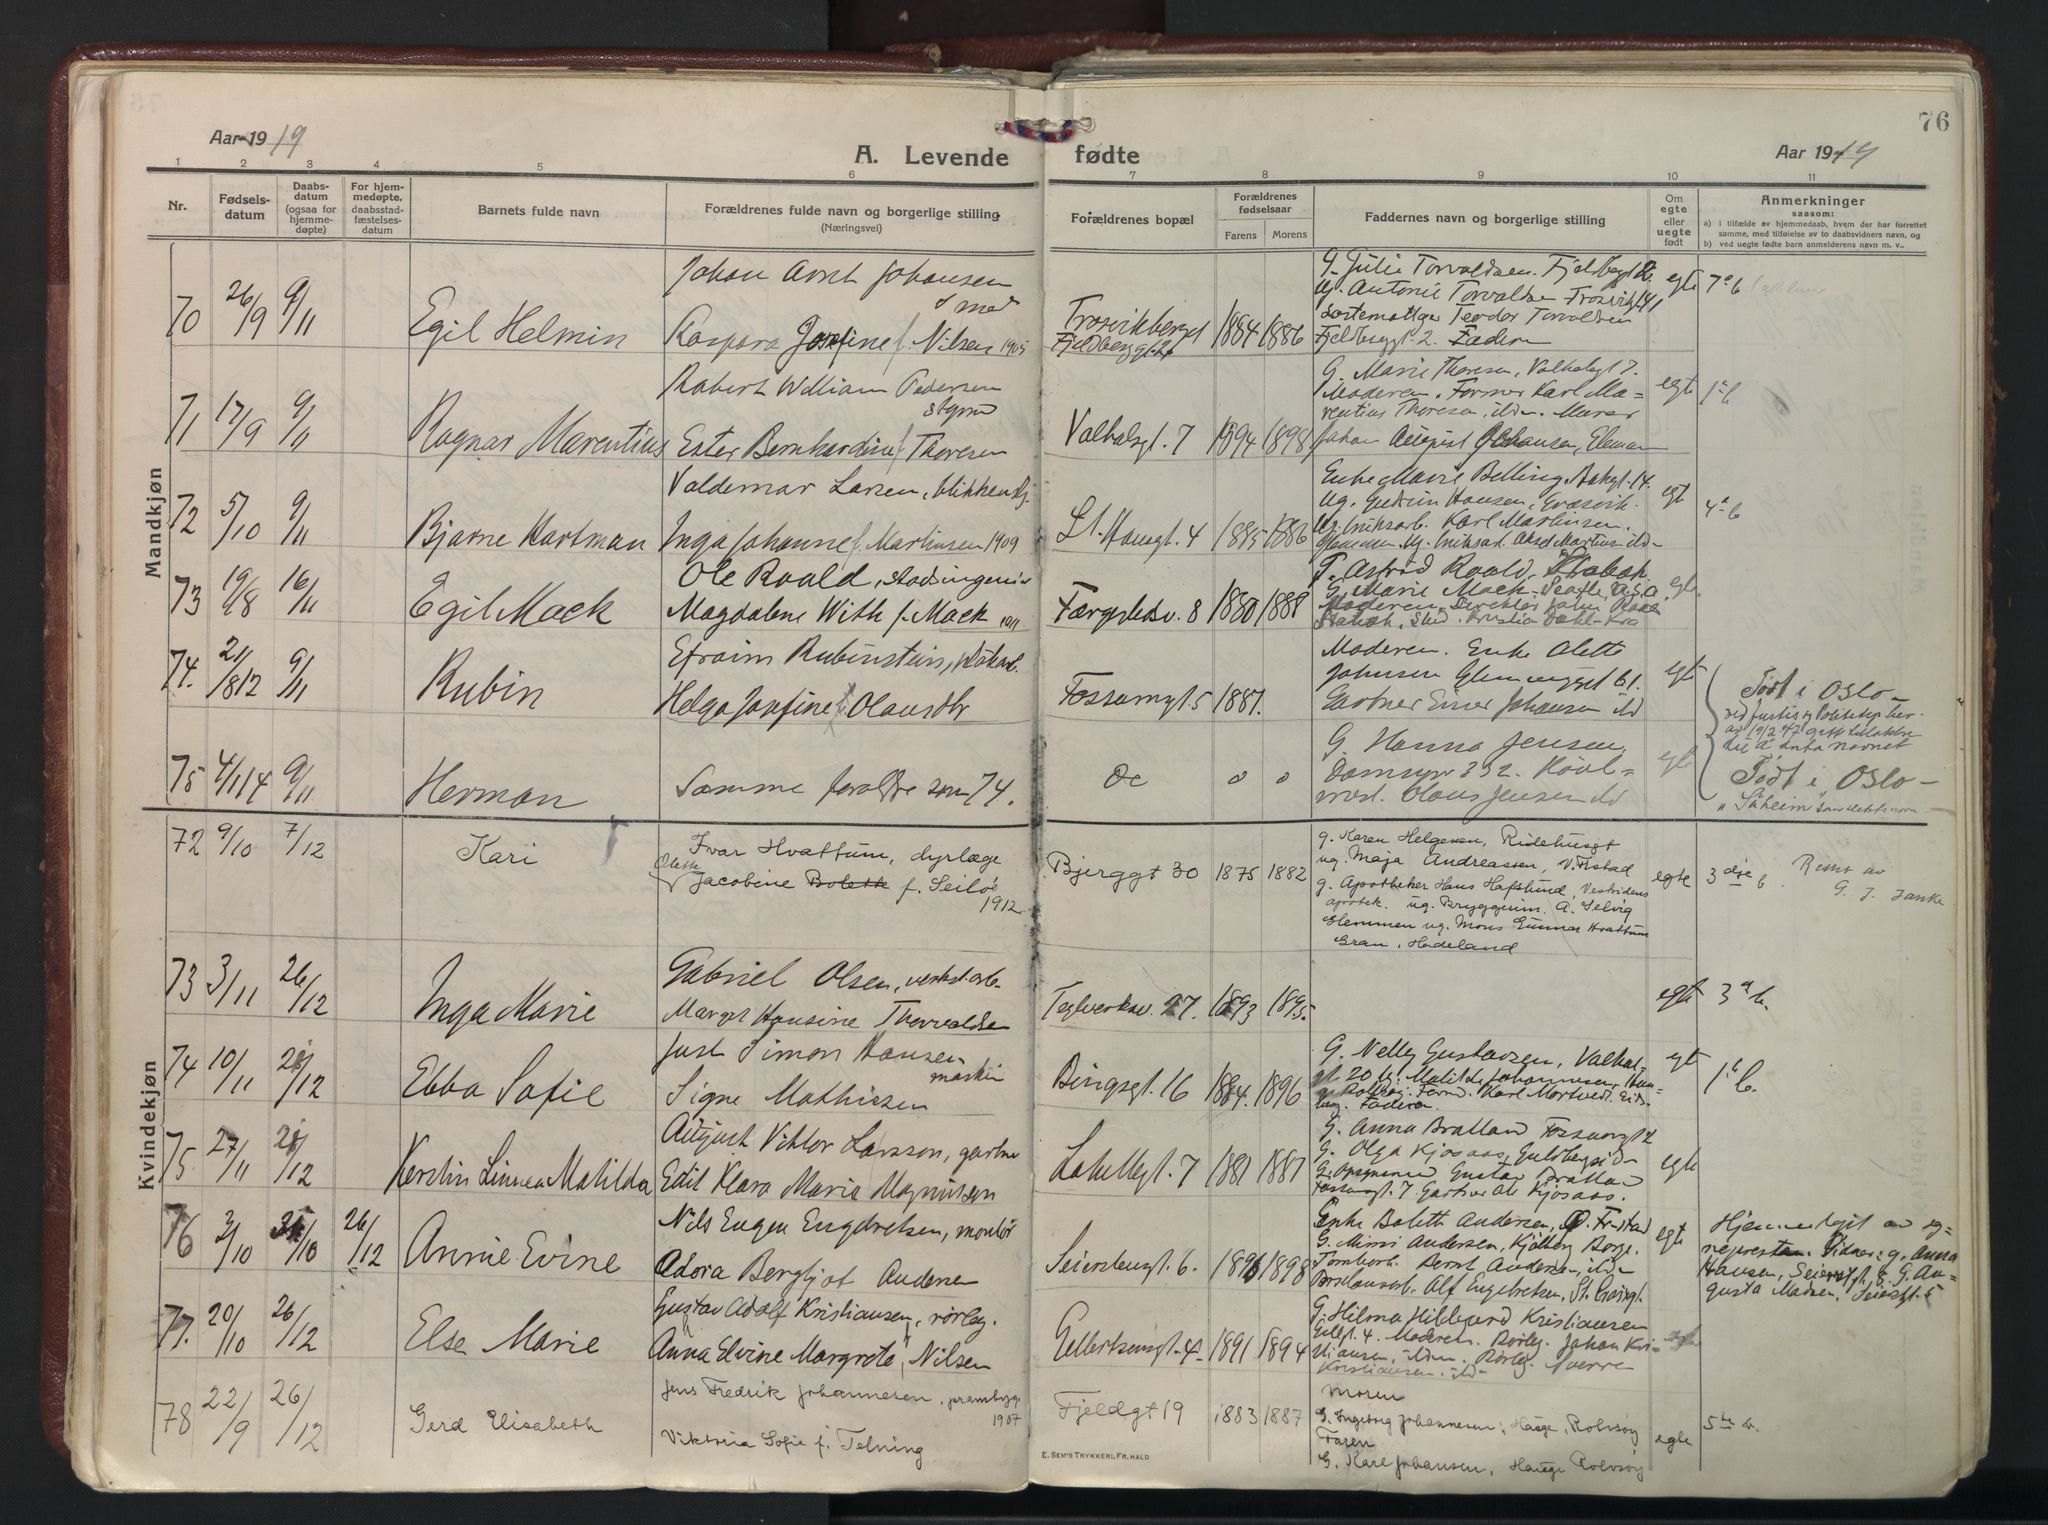 76
Aar 1919
A. Levende fødte
Aar 1919
1 2 3 4 5 6 7 8 9 10 11
Nr.
Fødsels-
datum
Daabs-
datum
(ogsaa for
hjemme-
døpte)
For hjem-
medøpte,
daabsstad-
fæstelses-
datum
Barnets fulde navn
Forældrenes fulde navn og borgerlige stilling
(Næringsvei)
Forældrenes bopæl
Forældrenes
fødselsaar
Farens Morens
Faddernes navn og borgerlige stilling
Om
egte
eller
uegte
født
Anmerkninger
saasom:
a) i tilfælde av hjemmedaab, hvem der har forrettet
samme, med tilføielse av to daabsvidners navn, og
b) ved uegte fødte barn anmelderens navn m. v..
Mandkjøn
70 26/9 9/11 Egil Helmin
Johan Arnt Johansen
smed
Kaspara Josefine f. Nilsen 1905
Trosvikberget
Fjeldberggt. 2
1884 1886
G. Julie Torvaldsen. Fjeldbergt 2.
Ug. Antonie Torvaldsen Trosvikgt 41
Teodor Torvaldsen
Fjeldberggt. 2. Faderen
egte 7de b
71 17/9 9/11 Ragnar Marentius
Robert William Pedersen
styrm
Ester Bernhardine f. Thoresen
Valhalgt. 7 1894 1898
G. Marie Thoresen, Valhalgt 7.
Moderen. Former Karl Ma-
rentius Thoresen, ibdm. Murer
Johan August Johansen, Glemmen
egte 1ste b
72 5/10 9/11 Bjarne Hartman
Valdemar Larsen, blikkenslg.
Inga Johanne f. Martinsen 1909
St. Hansgt. 4 1885 1886
Enke Marie Belling, Bakgt. 14.
Ug. Gudrun Hansen, Græsvik.
Ug. briksarb. Karl Martinsen.
Glemmen. Ug. briksarb. Aksel Martins. ibd-
egte 4de b
73 19/8 16/11 Egil Mack
Ole Roald, stadsingeniør
Magdalene With f. Mack 1911
Færgestedsv. 8 1880 1888
F. Astrid Roald, Stabæk.
G. Marie Mack. Seatle, U.S.A.
Moderen. Direktør John Roald
Stabæk. Stud. Kristian Dahl. Kra
egte.
74. 21/8 12 9/11 Rubin
Efraim Rubinstein, platearb.
Helga Josefine f. Olausdtr
Fossumgt 5 1887.
Moderen. Enke Olette
Johansen Glemmengt 61.
Gartner Einer Johansen ibd
egte
Født i Oslo -
ved Justis og Politidep. her.
av 19/2 47 gitt tillatelse
til å anta navnet
75 4/11 14 9/11 Herman
Samme foraldre som 74.
Do " "
G. Hanna Jensen
Damsvn 392. Kool-
mest. Olaus Jensen ibd
egte
Født i Oslo -
"Såheim" som slektsnavn
Kvindekjøn
72 9/10 7/12 Kari
Ivar Hvattum, dyrlæge
Olette
Jacobine Bolette f. Seiløe
1912.
Bjerggt 30 1875 1882
g. Karen Helgesen, Ridehusgt
ug. Maja Andreassen, V. Frstad
g. Apotheker Hans Hafslund, Vestsidens
apotek. ug. Bryggeum. A. Selvig
Glemmen ug. Mons Gunnar Hvattum
Gran, Hadeland
egte 3dje b.
Rekv. av
G. J. Janke
73 3/11 26/12 Inga Marie
Gabriel Olsen, verkst.arb.
Margit Hansine Thorvaldsen
Teglverksv. 27. 1893 1895.
egte 3de b.
74 10/11 26/12 Ebba Sofie
Just Simon Hansen
maskin
Signe Mathisen
Bingsgt. 16 1884. 1896
G. Nelly Gustavsen, Valhal-
gt. 20 Ug. Matilde Johannesen, Hun-
Karl Mortvedt. Eids-
berg. Faderen.
egte 1ste b.
75 27/11 26/12 Kerstin Linnea Matilda
August Viktor Larsson, gartner
Edit Klara Maria Magnusson
Labelbgt. 7 1881 1887
G. Anna Bratland Fossumgt 2
G. Olga Kjøsaas, Guldbergsid-
Gustav Bratland
Fossumgt. 7 Gartner Ole Kjøsaas.
egte
76 3/10 31/10 26/12 Annie Evine
Nils Eugen Engebretsen, montør
Adora Bergljot Andersen
Seierstensgt. 6. 1896 1898
Enke Bolette Andersen, Ø. Frstad
G. Mimi Andersen, Kjølberg Borge.
Tomtearb. Bernt Andersen, ibdm
Alf Engebretsen, St. Croixgt.
egte
Hjemmedøpt av sog-
nepresten. Vidner: g. Anna
Hansen, Seierstgt. 6. G. Au-
gusta Madsen, Seierstgt. 5
77. 20/10 26/12 Else Marie
Gustav Adolf Kristiansen, rørleg.
Anna Elvine Margrete f. Nilsen
Gellertsensgt. 4 1891 1894
G. Hilma Hildegard Kristiansen
Gellgt. 4. Moderen. Rørleg. Johan Kri-
stiansen, ibdm. Rørleg. Sverre
Kristiansen. ibd-
egte
78 22/9 26/12 Gerd Elisabeth
Jens Fredrik Johannesen, prambygg.
1907
Viktoria Sofie f. Telning
Fjeldgt 19 1883 1887
Moren
G. Ingeborg Johannesen, Hauge, Rolvsøy
Faren
G. Karl Johansen, Hauge Rolvsøy
egte 5te b.
E. SEM'S TRYKKERI, FR.HALD